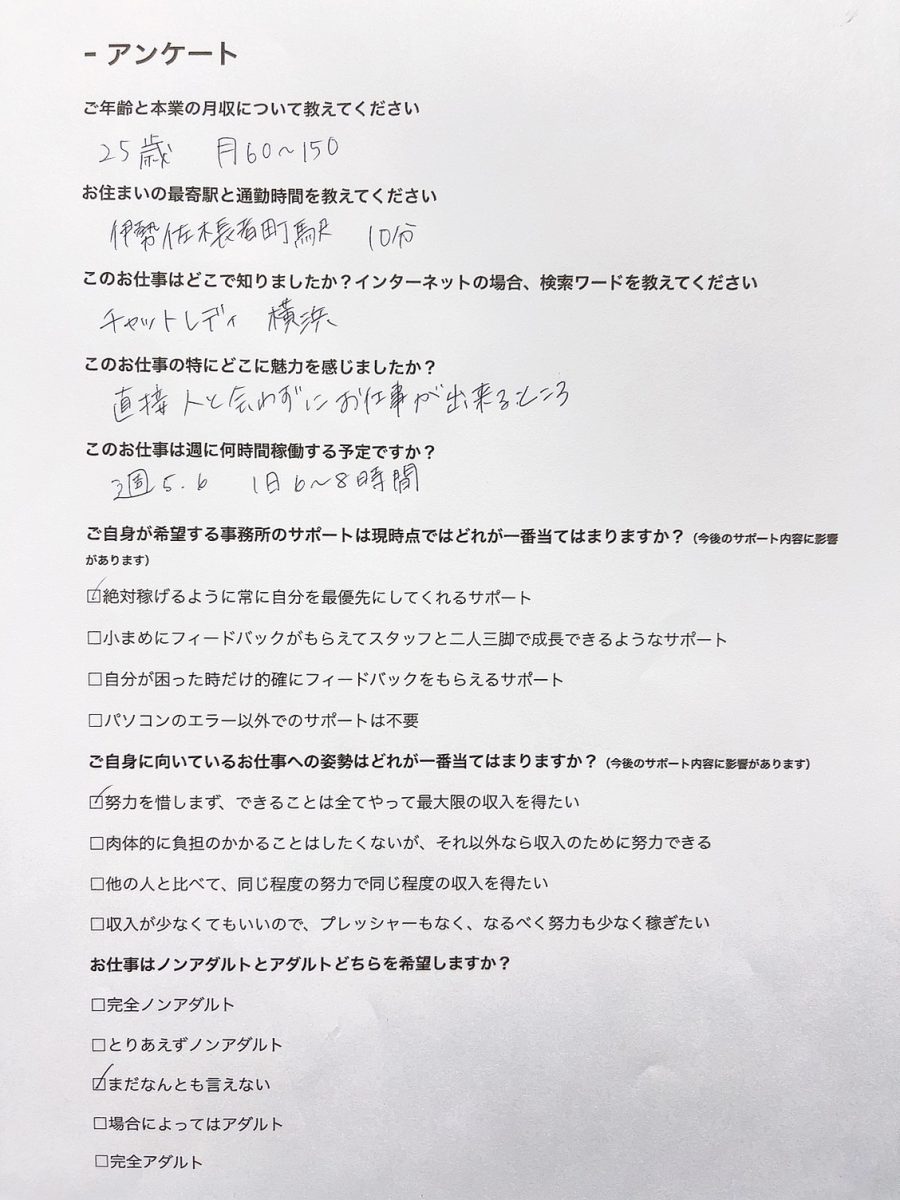 - アンケート
ご年齢と本業の月収について教えてください
25歳 月60〜150
お住まいの最寄駅と通勤時間を教えてください
伊勢佐木長者町駅 10分
このお仕事はどこで知りましたか？インターネットの場合、検索ワードを教えてください
チャットレディ 横浜
このお仕事の特にどこに魅力を感じましたか？
直接人と会わずにお仕事が出来るところ
このお仕事は週に何時間稼働する予定ですか？
週5.6 1日6〜8時間
ご自身が希望する事務所のサポートは現時点ではどれが一番当てはまりますか？（今後のサポート内容に影響
があります）
☑絶対稼げるように常に自分を最優先にしてくれるサポート
□小まめにフィードバックがもらえてスタッフと二人三脚で成長できるようなサポート
□自分が困った時だけ的確にフィードバックをもらえるサポート
□パソコンのエラー以外でのサポートは不要
ご自身に向いているお仕事への姿勢はどれが一番当てはまりますか？（今後のサポート内容に影響があります）
☑努力を惜しまず、できることは全てやって最大限の収入を得たい
□肉体的に負担のかかることはしたくないが、それ以外なら収入のために努力できる
□他の人と比べて、同じ程度の努力で同じ程度の収入を得たい
□収入が少なくてもいいので、プレッシャーもなく、なるべく努力も少なく稼ぎたい
お仕事はノンアダルトとアダルトどちらを希望しますか？
□完全ノンアダルト
□とりあえずノンアダルト
☑まだなんとも言えない
□場合によってはアダルト
□完全アダルト